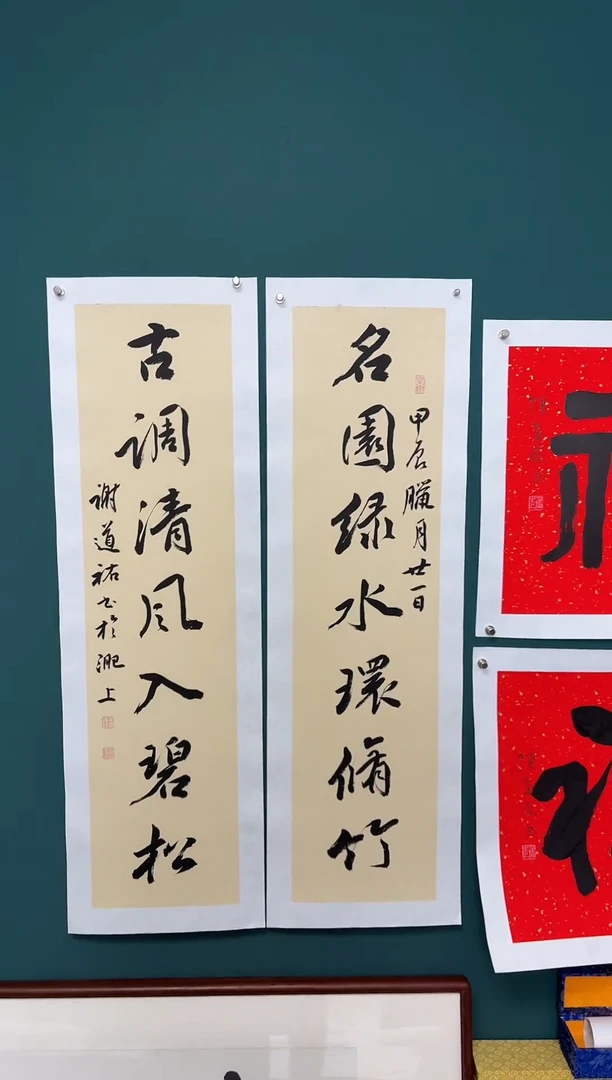 名園绿水環脩竹
甲辰臘月廿一日
古调清风入碧松
谢道祐书於淝上